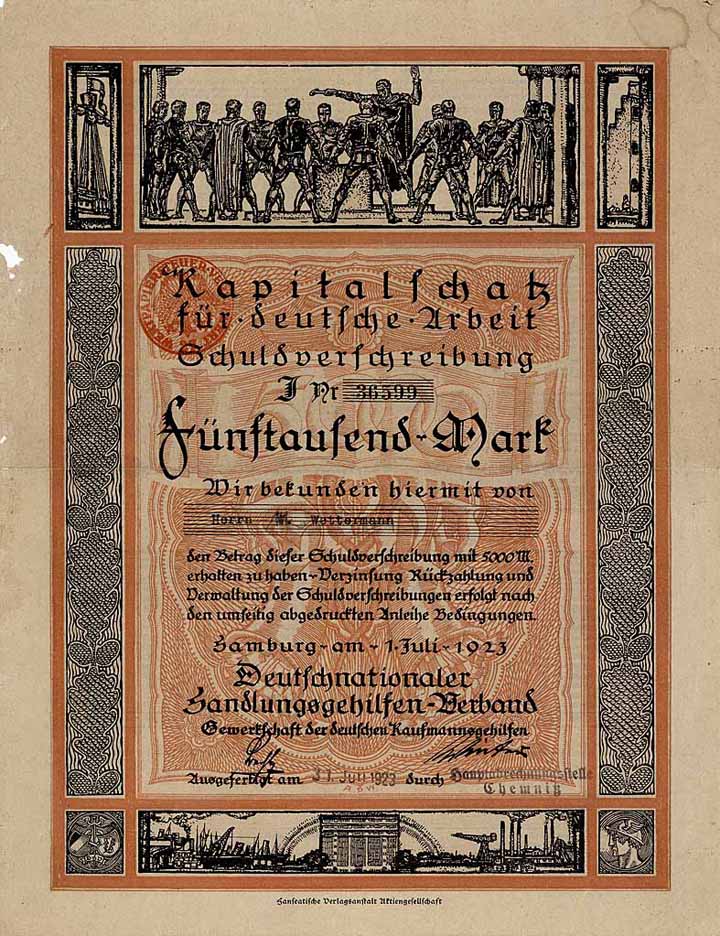 Kapitalschatz
für · deutsche · Arbeit
Schuldverschreibung
J Nr 36599
Fünftausend-Mark
Wir bekunden hiermit von
Herrn W. Wettermann
den Betrag dieser Schuldverschreibung mit 5000 M.
erhalten zu haben - Verzinsung Rückzahlung und
Verwaltung der Schuldverschreibungen erfolgt nach
den umseitig abgedruckten Anleihe Bedingungen.
Hamburg - am - 1 · Juli - 1923
Deutschnationaler
Handlungsgehilfen-Verband
Gewerkschaft der deutschen Kaufmannsgehilfen
Ausgefertigt am 31. Juli 1923 durch Hauptabrechnungsstelle
Chemnitz
Hanseatische Verlagsanstalt Aktiengesellschaft